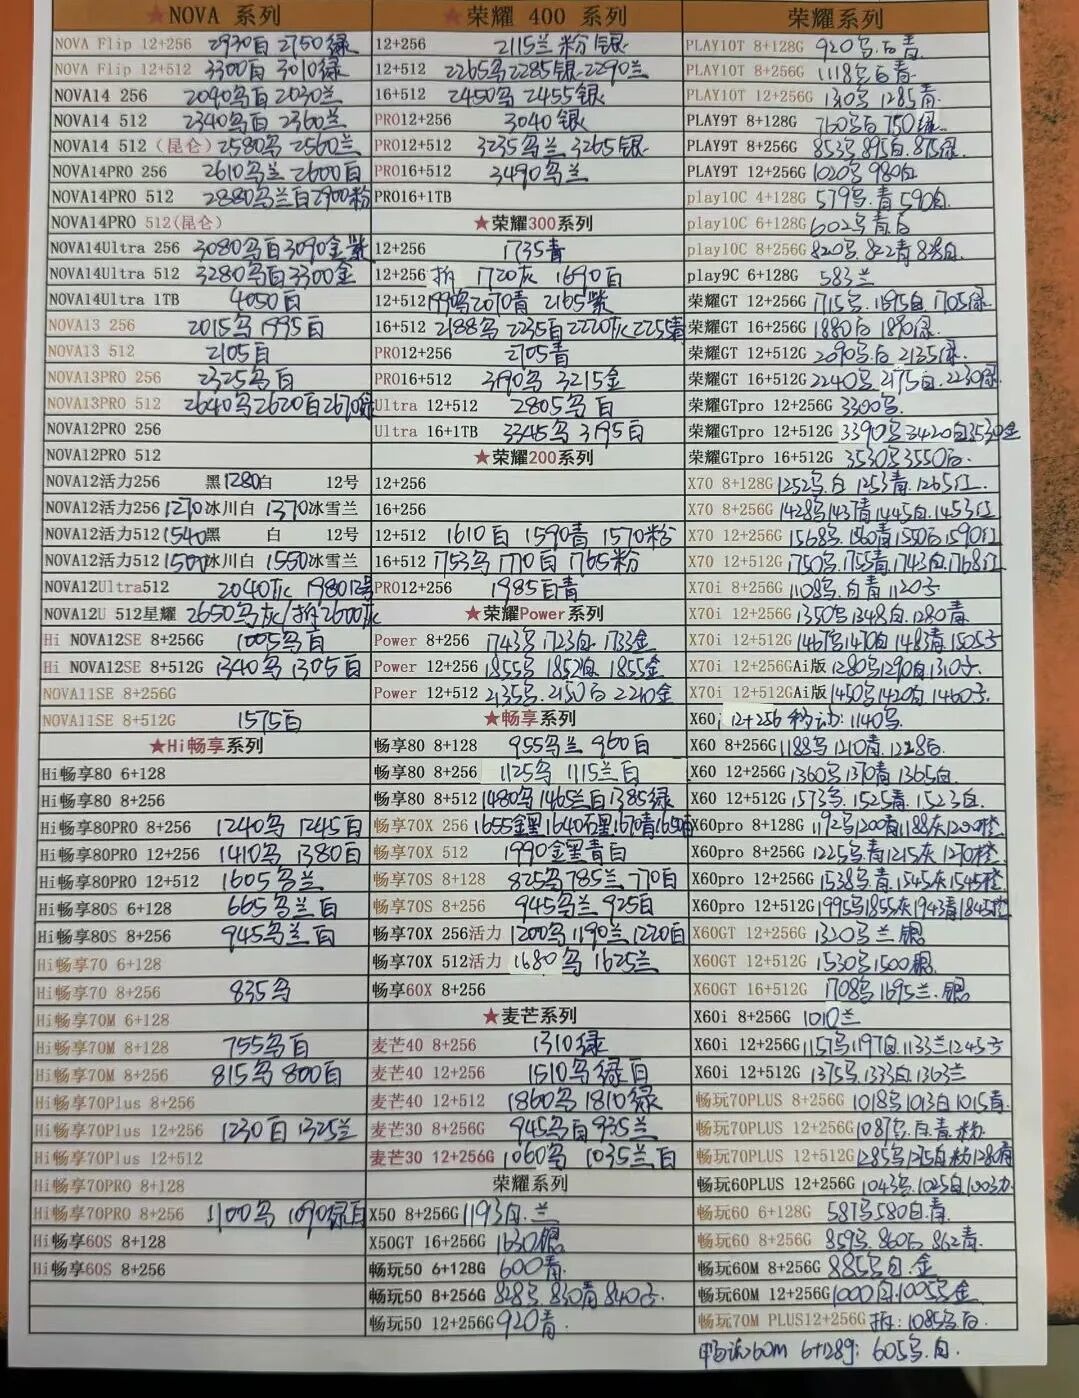 ★NOVA 系列
NOVA Flip 12+256 2930白 2750绿
NOVA Flip 12+512 3300白 3010绿
NOVA14 256 2090乌白 2030兰
NOVA14 512 2340乌白 2360兰
NOVA14 512（昆仑）2580乌 2560兰
NOVA14PRO 256 2610乌兰 2600白
NOVA14PRO 512 2880乌兰白2900粉
NOVA14PRO 512(昆仑)
NOVA14Ultra 256 3080乌白3090金紫
NOVA14Ultra 512 3280乌白3300金
NOVA14Ultra 1TB 4050白
NOVA13 256 2015乌 1995白
NOVA13 512 2105白
NOVA13PRO 256 2325乌白
NOVA13PRO 512 2640乌2620白2670绿
NOVA12PRO 256
NOVA12PRO 512
NOVA12活力256 黑1280白 12号
NOVA12活力256 1270冰川白 1370冰雪兰
NOVA12活力512 1540黑 白 12号
NOVA12活力512 1500冰川白 1550冰雪兰
NOVA12Ultra512 2040灰 198012号
NOVA12U 512星耀 2650乌灰/拆2600灰
Hi NOVA12SE 8+256G 1005乌白
Hi NOVA12SE 8+512G 1340乌 1305白
NOVA11SE 8+256G
NOVA11SE 8+512G 1575白
★Hi畅享系列
Hi畅享80 6+128
Hi畅享80 8+256
Hi畅享80PRO 8+256 1240乌 1245白
Hi畅享80PRO 12+256 1410乌 1380白
Hi畅享80PRO 12+512 1605乌兰
Hi畅享80S 6+128 665乌兰白
Hi畅享80S 8+256 945乌兰白
Hi畅享70 6+128
Hi畅享70 8+256 835乌
Hi畅享70M 6+128
Hi畅享70M 8+128 755乌白
Hi畅享70M 8+256 815乌 800白
Hi畅享70Plus 8+256
Hi畅享70Plus 12+256 1230白 1325兰
Hi畅享70Plus 12+512
Hi畅享70PRO 8+128
Hi畅享70PRO 8+256 1100乌 1090绿白
Hi畅享60S 8+128
Hi畅享60S 8+256
★荣耀 400 系列
12+256 2115兰 粉 银
12+512 2265乌2285银2290兰
16+512 2450乌 2455银
PRO12+256 3040银
PRO12+512 3235乌兰 3265银
PRO16+512 3490乌兰
PRO16+1TB
★荣耀300系列
12+256 1735青
12+256 拆 1720灰 1690白
12+512 1990乌2070青 2165紫
16+512 2188乌 2235白2220灰2255青
PRO12+256 2705青
PRO16+512 3190乌 3215金
Ultra 12+512 2805乌白
Ultra 16+1TB 3345乌 3195白
★荣耀200系列
12+256
16+256
12+512 1610白 1590青 1570粉
16+512 1753乌 1770白 1765粉
PRO12+256 1985白青
★荣耀Power系列
Power 8+256 1743乌 1723白 1733金
Power 12+256 1855乌 1852白 1855金
Power 12+512 2135乌 2150白 2210金
★畅享系列
畅享80 8+128 955乌兰 960白
畅享80 8+256 1125乌 1115兰白
畅享80 8+512 1480乌1465兰白1385绿
畅享70X 256 1655金黑1640石黑1670青1650白
畅享70X 512 1990金黑青白
畅享70S 8+128 825乌785兰770白
畅享70S 8+256 945乌兰 925白
畅享70X 256活力 1200乌1190兰1220白
畅享70X 512活力 1680乌 1625兰
畅享60X 8+256
★麦芒系列
麦芒40 8+256 1310绿
麦芒40 12+256 1510乌绿白
麦芒40 12+512 1860乌 1810绿
麦芒30 8+256G 945乌白935兰
麦芒30 12+256G 1060乌 1035兰白
荣耀系列
X50 8+256G 1193白.兰
X50GT 16+256G 1630银
畅玩50 6+128G 600青
畅玩50 8+256G 828乌 830青 840方
畅玩50 12+256G 920青
荣耀系列
PLAY10T 8+128G 920乌.白青
PLAY10T 8+256G 1118乌白青
PLAY10T 12+256G 1310乌 1285青
PLAY9T 8+128G 760乌白 750绿
PLAY9T 8+256G 853乌 895白.815绿
PLAY9T 12+256G 1020乌 980白
play10C 4+128G 579乌.青 590白
play10C 6+128G 602乌青白
play10C 8+256G 820乌.822青
play9C 6+128G 583兰
荣耀GT 12+256G 1715乌.1695白1705绿
荣耀GT 16+256G 1880白 1890绿
荣耀GT 12+512G 2090乌.白 2135绿
荣耀GT 16+512G 2240乌 2175白.2230绿
荣耀GTpro 12+256G 3300乌
荣耀GTpro 12+512G 3390乌3420白3530金
荣耀GTpro 16+512G 3530乌3550白
X70 8+128G 1252乌.白 1253青.1265红
X70 8+256G 1428乌1437青1445白1453红
X70 12+256G 1568乌.1560青1550白1590红
X70 12+512G 1750乌.1755青.1743白1768红
X70i 8+256G 1108乌.白青1120方
X70i 12+256G 1350乌1348白.1280青
X70i 12+512G 1467乌1470白1483青1505方
X70i 12+256GAi版 1280乌1290白1310方
X70i 12+512GAi版 1450乌1420白1460方
X60i 12+256 移动:1140乌
X60 8+256G 1188乌 1210青 1228白
X60 12+256G 1360乌1370青1365白
X60 12+512G 1573乌.1525青.1523白
X60pro 8+128G 1192乌1200青1188灰1200橙
X60pro 8+256G 1225乌.青1215灰1270橙
X60pro 12+256G 1538乌青.1545灰1545橙
X60pro 12+512G 1995乌1855灰1943青1845橙
X60GT 12+256G 1320乌兰银
X60GT 12+512G 1530乌1500银
X60GT 16+512G 1708乌1695兰.银
X60i 8+256G 1010兰
X60i 12+256G 1157乌1197白1133兰1245方
X60i 12+512G 1375乌.1333白.1363兰
畅玩70PLUS 8+256G 1018乌1013白1015青
畅玩70PLUS 12+256G 1087乌.白.青.粉
畅玩70PLUS 12+512G 1285乌1275白粉1280青
畅玩60PLUS 12+256G 1043乌.1025白
畅玩60 6+128G 581乌580白.青
畅玩60 8+256G 859乌.860白 862青
畅玩60M 8+256G 885乌白.金
畅玩60M 12+256G 1000白.1005乌金
畅玩70M PLUS12+256G 拆:1085乌白
畅玩60m 6+128g: 605乌.白.